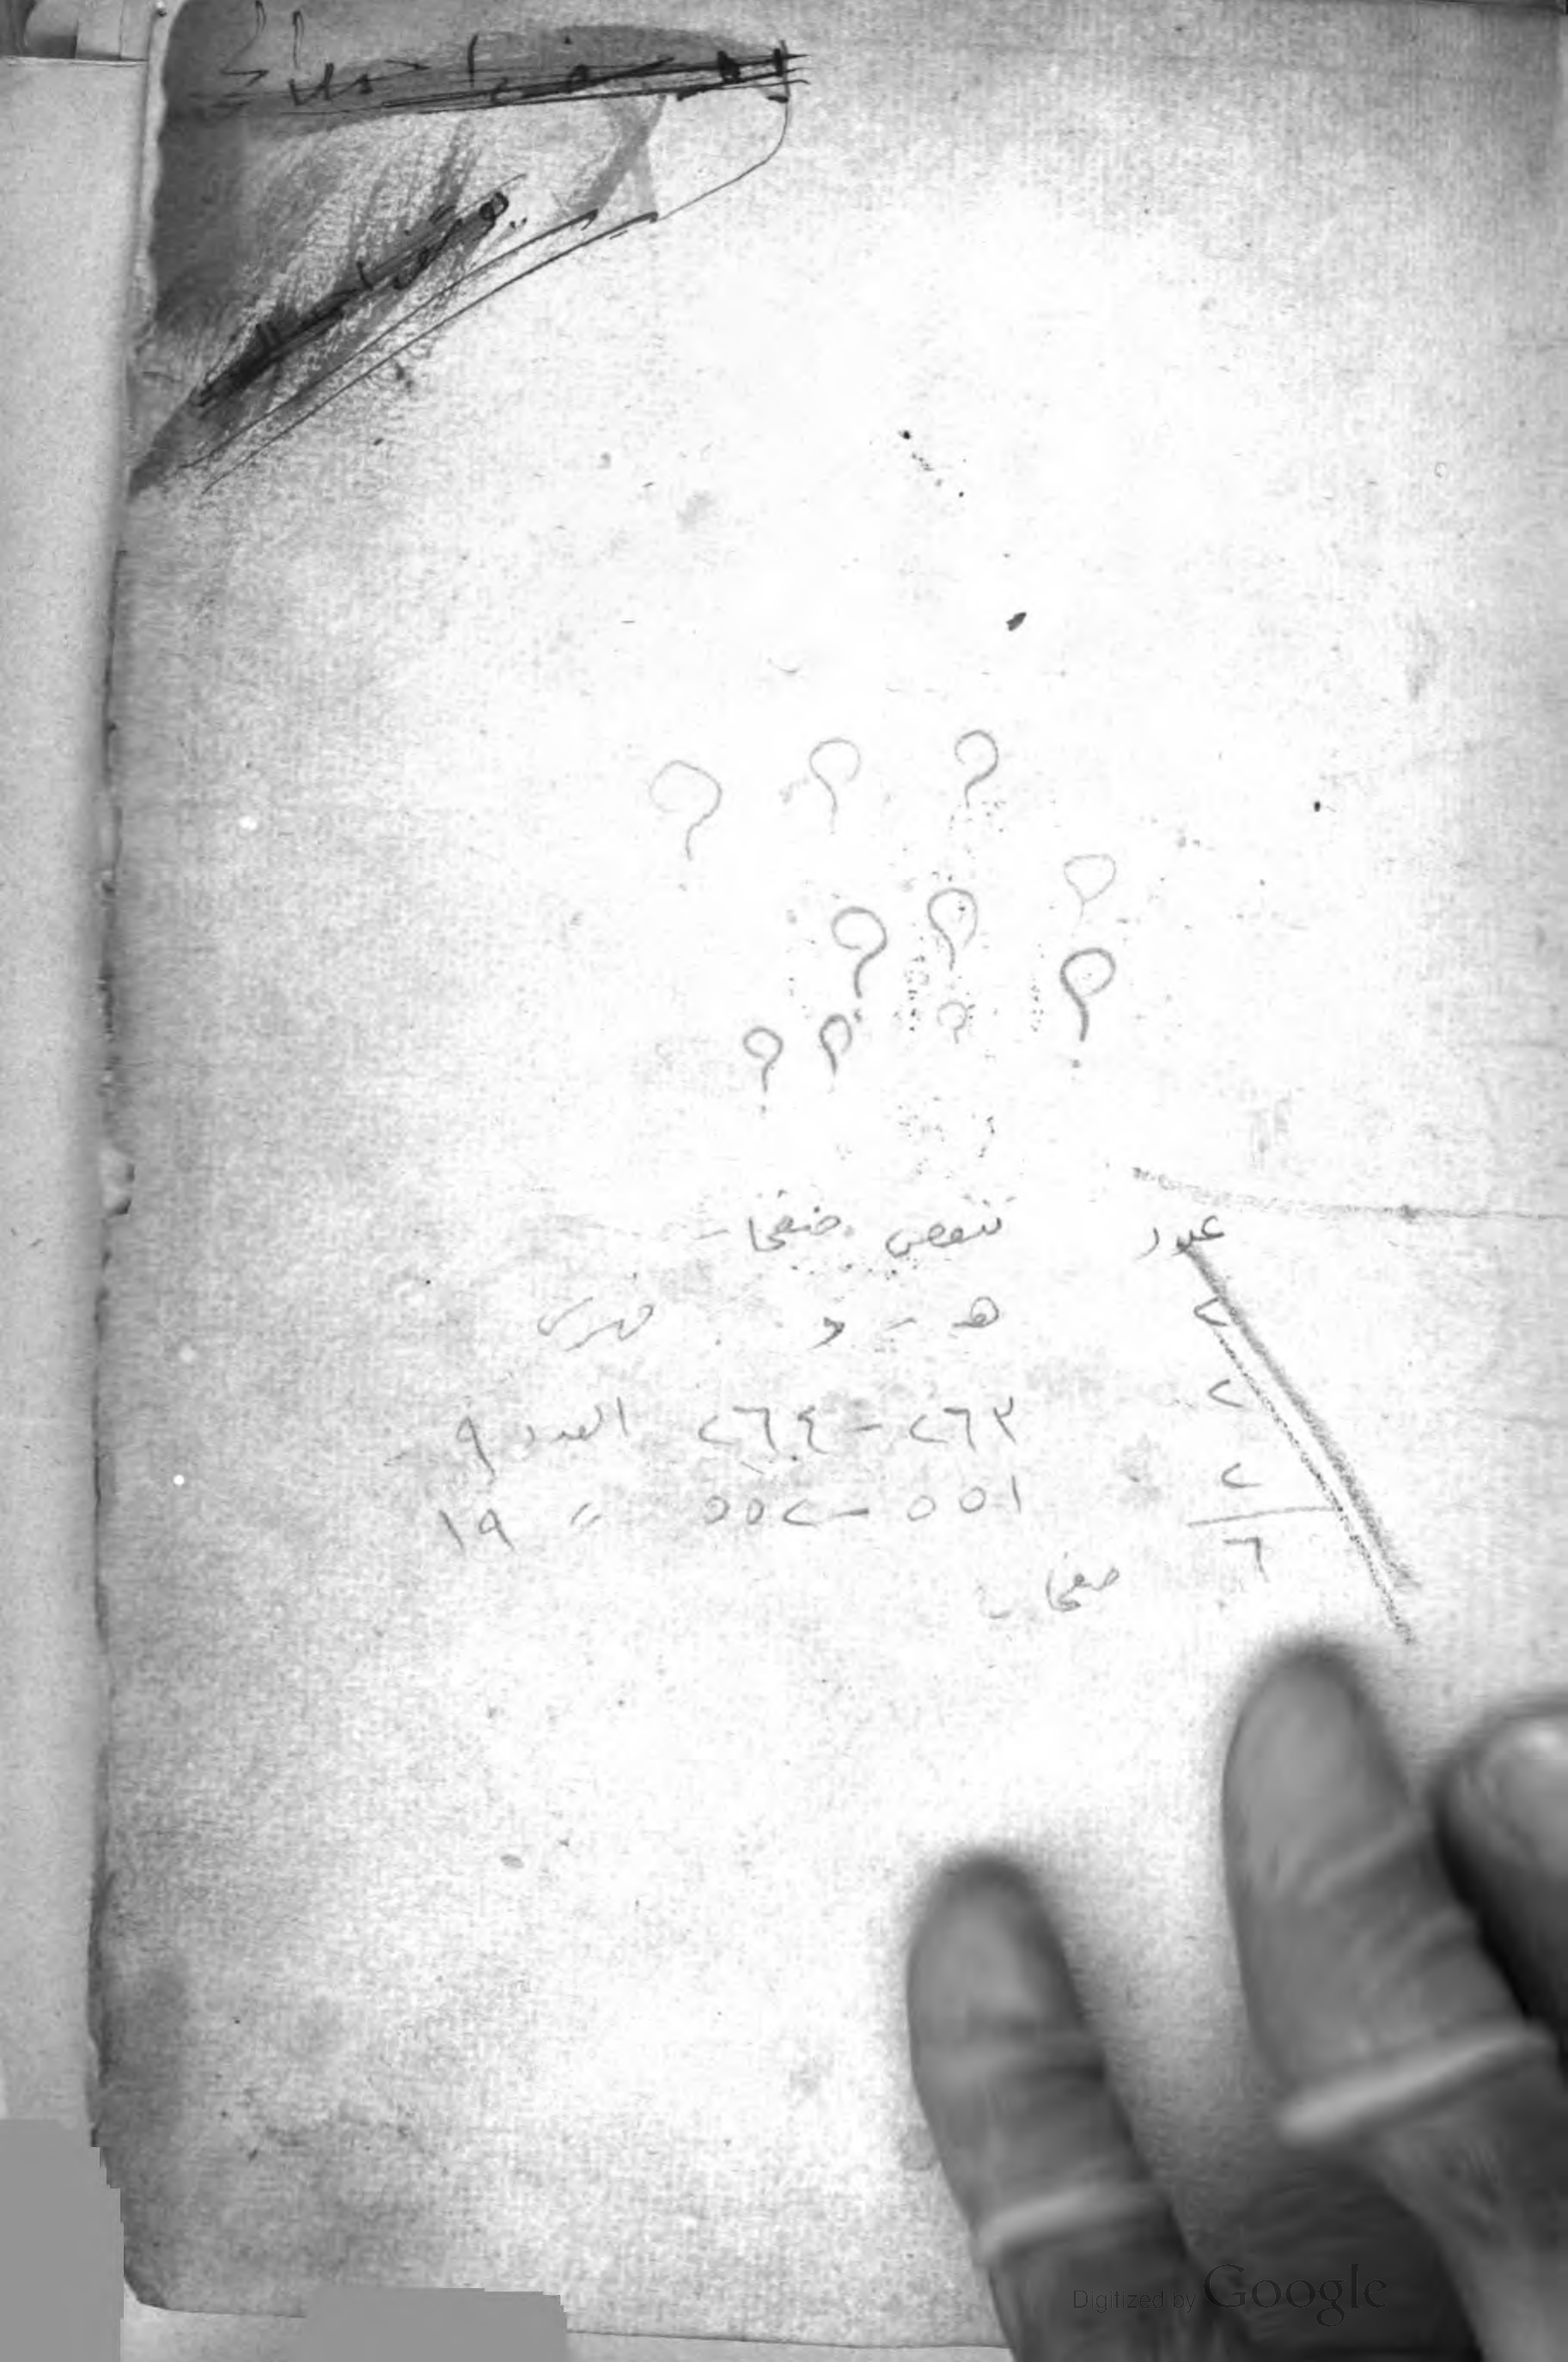 ? ? ?
?
? ?
?
? ? ?
عدد تنقص صفحات
٢ هـ - و فهرس
٢ ٢٦٣ - ٢٦٤ العدد ٩
٢ ٥٥١ - ٥٥٢ " ١٩
٦ صفحات
Digitized by Google